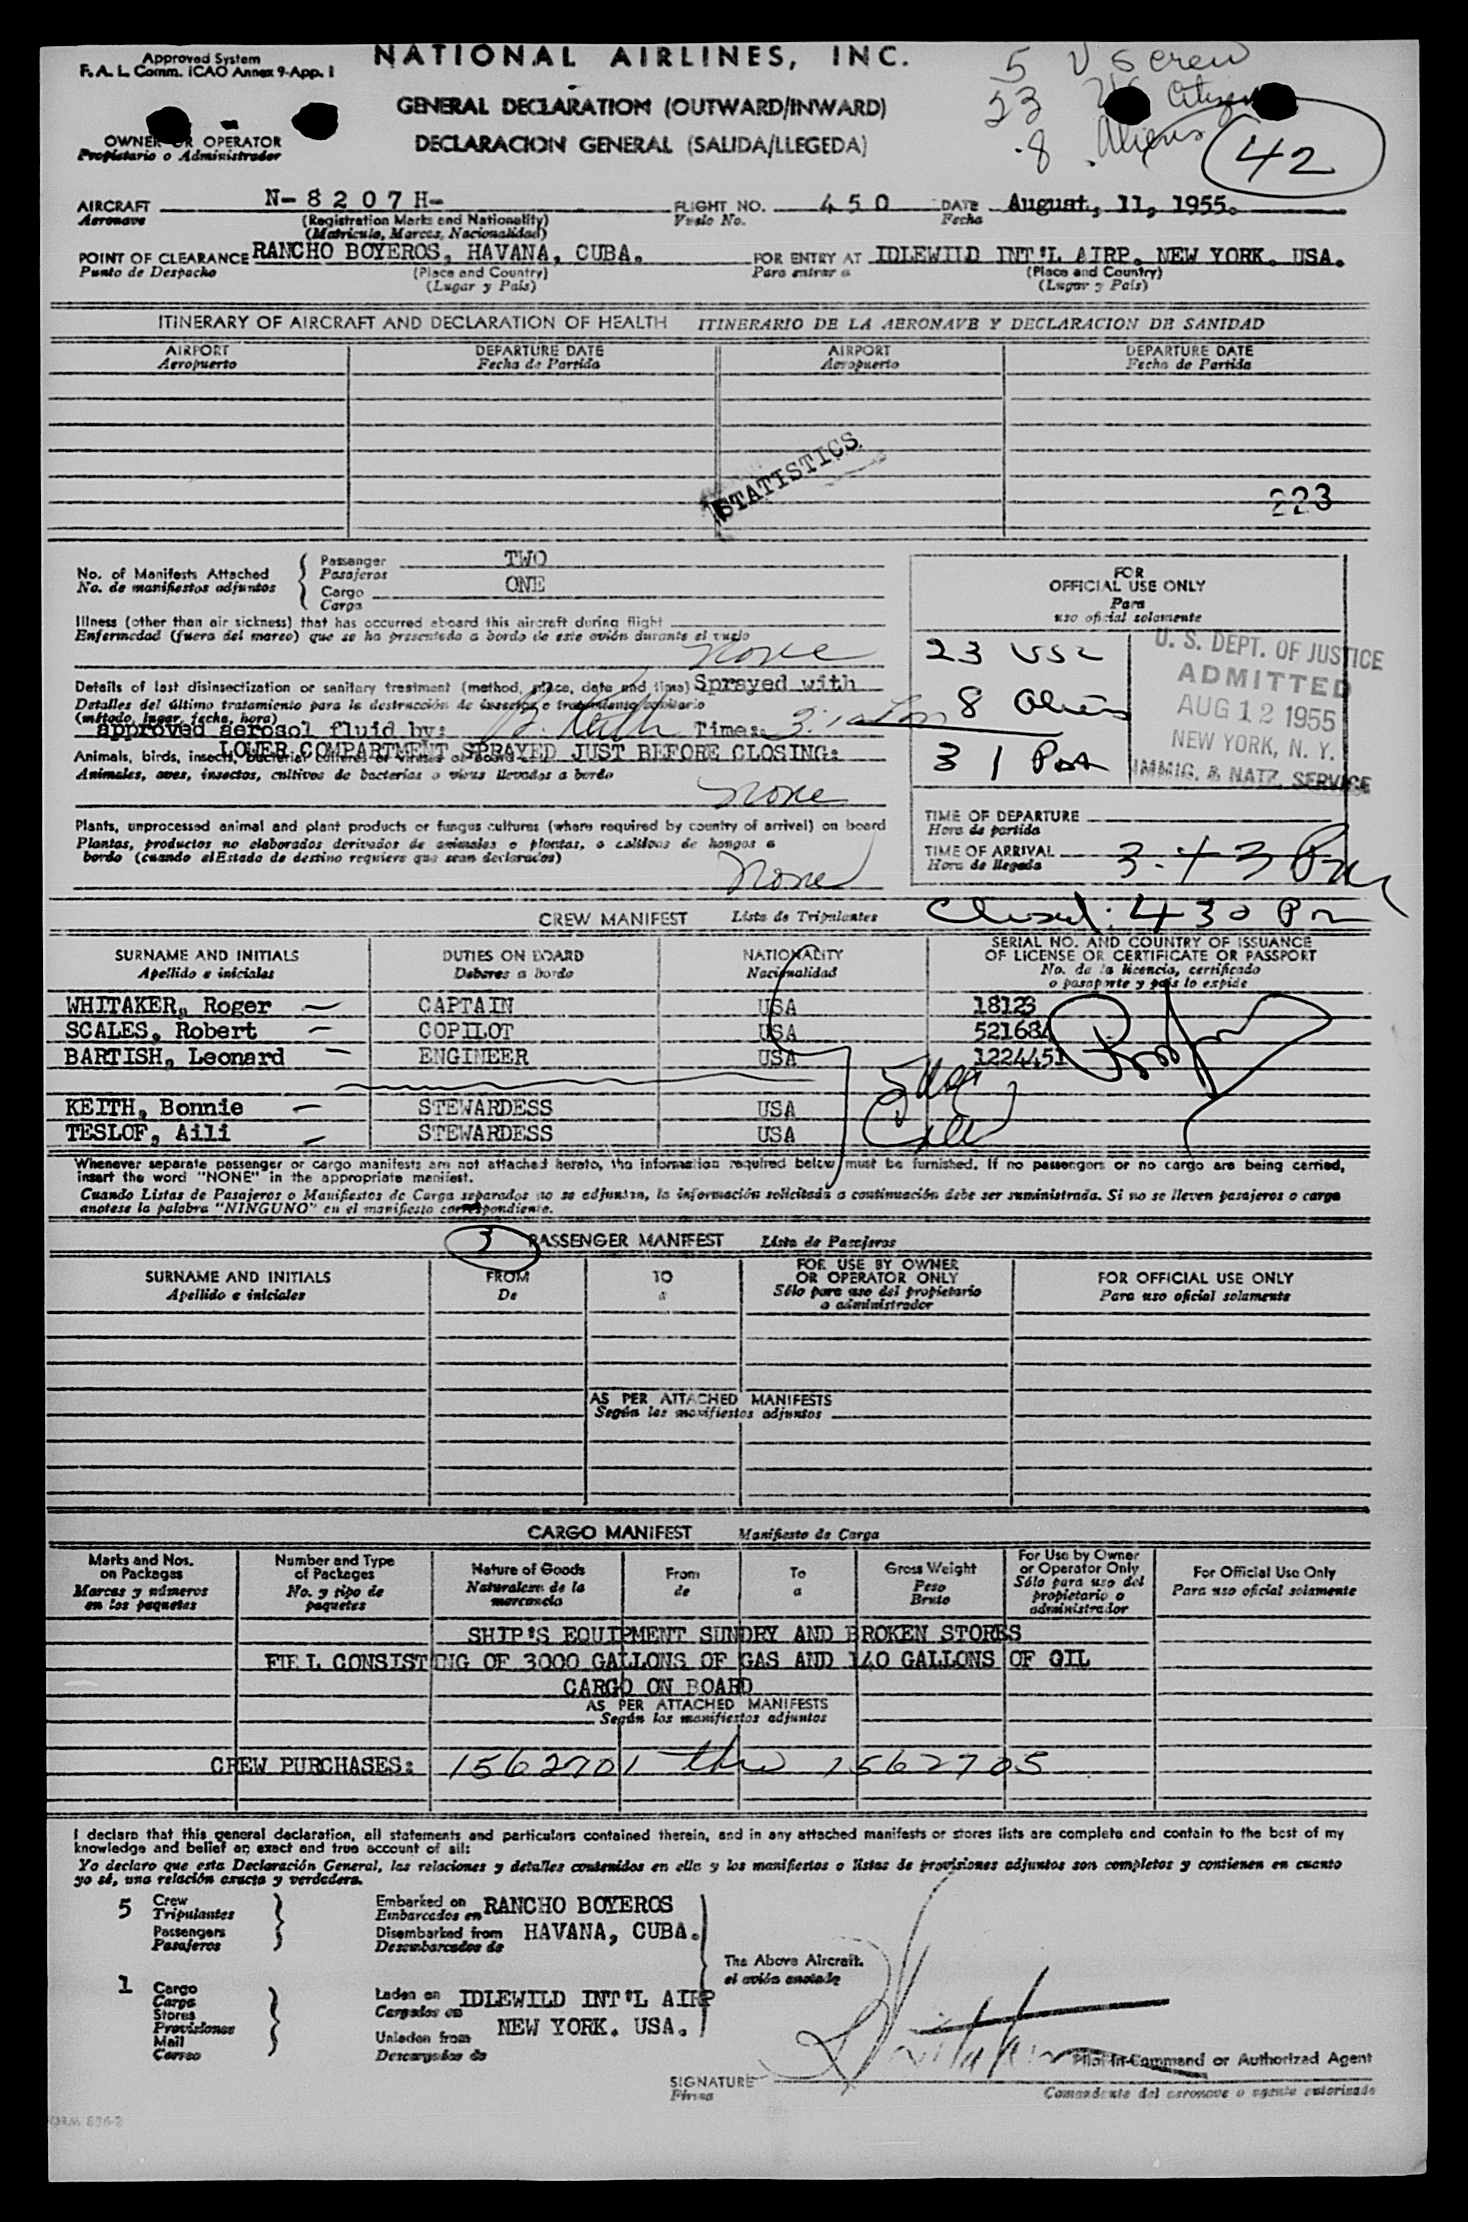 Approved System
F. A. L. Comm. ICAO Annex 9-App. I
NATIONAL AIRLINES, INC.
5 US crew
23 US Citizens
8 Aliens
42
GENERAL DECLARATION (OUTWARD/INWARD)
DECLARACION GENERAL (SALIDA/LLEGEDA)
OWNER OR OPERATOR
Propietario o Administrador
AIRCRAFT N-8207H- FLIGHT NO. 450 DATE August, 11, 1955.
Aeronave (Registration Marks and Nationality) Vuelo No. Fecha
(Matricula, Marcas, Nacionalidad)
POINT OF CLEARANCE RANCHO BOYEROS, HAVANA, CUBA. FOR ENTRY AT IDLEWILD INT'L AIRP. NEW YORK. USA.
Punto de Despacho (Place and Country) Para entrar a (Place and Country)
(Lugar y País) (Lugar y País)
ITINERARY OF AIRCRAFT AND DECLARATION OF HEALTH ITINERARIO DE LA AERONAVE Y DECLARACION DE SANIDAD
AIRPORT DEPARTURE DATE AIRPORT DEPARTURE DATE
Aeropuerto Fecha de Partida Aeropuerto Fecha de Partida
STATISTICS
223
No. of Manifests Attached
No. de manifiestos adjuntos
Passenger TWO
Pasajeros
Cargo ONE
Carga
FOR
OFFICIAL USE ONLY
Para
uso oficial solamente
Illness (other than air sickness) that has occurred aboard this aircraft during flight
Enfermedad (fuera del mareo) que se ha presentado a bordo de este avión durante el vuelo
none
23 USC
8 Aliens
31 Pax
U. S. DEPT. OF JUSTICE
ADMITTED
AUG 12 1955
NEW YORK, N. Y.
IMMIG. & NATZ. SERVICE
Details of last disinsectization or sanitary treatment (method, place, date and time) Sprayed with
Detalles del último tratamiento para la destrucción de insectos o tratamiento sanitario
(método, lugar, fecha, hora)
approved aerosol fluid by: B. Keith Time:
LOWER COMPARTMENT SPRAYED JUST BEFORE CLOSING:
Animals, birds, insects, bacterial cultures or viruses on board
Animales, aves, insectos, cultivos de bacterias o virus llevados a bordo
none
Plants, unprocessed animal and plant products or fungus cultures (where required by country of arrival) on board
Plantas, productos no elaborados derivados de animales o plantas, o cultivos de hongos a
bordo (cuando el Estado de destino requiere que sean declarados)
none
TIME OF DEPARTURE
Hora de partida
TIME OF ARRIVAL 3:43 Pm
Hora de llegada
Closed: 430 Pm
CREW MANIFEST Lista de Tripulantes
SURNAME AND INITIALS DUTIES ON BOARD NATIONALITY SERIAL NO. AND COUNTRY OF ISSUANCE
OF LICENSE OR CERTIFICATE OR PASSPORT
Apellido e iniciales Deberes a bordo Nacionalidad No. de la licencia, certificado
o pasaporte y país lo expide
WHITAKER, Roger CAPTAIN USA 18123
SCALES, Robert COPILOT USA 521684
BARTISH, Leonard ENGINEER USA 1224451
KEITH, Bonnie STEWARDESS USA
TESLOF, Aili STEWARDESS USA
Whenever separate passenger or cargo manifests are not attached hereto, the information required below must be furnished. If no passengers or no cargo are being carried,
insert the word "NONE" in the appropriate manifest.
Cuando Listas de Pasajeros o Manifiestos de Carga separados no se adjuntan, la información solicitada a continuación debe ser suministrada. Si no se lleven pasajeros o carga
anotese la palabra "NINGUNO" en el manifiesto correspondiente.
3
PASSENGER MANIFEST Lista de Pasajeros
SURNAME AND INITIALS FROM TO FOR USE BY OWNER
OR OPERATOR ONLY FOR OFFICIAL USE ONLY
Apellido e iniciales De a Sólo para uso del propietario
o administrador Para uso oficial solamente
AS PER ATTACHED MANIFESTS
Según los manifiestos adjuntos
CARGO MANIFEST Manifiesto de Carga
Marks and Nos.
on Packages
Marcas y números
en los paquetes
Number and Type
of Packages
No. y tipo de
paquetes
Nature of Goods
Naturaleza de la
mercancia
From
de
To
a
Gross Weight
Peso
Bruto
For Use by Owner
or Operator Only
Sólo para uso del
propietario o
administrador
For Official Use Only
Para uso oficial solamente
SHIP'S EQUIPMENT SUNDRY AND BROKEN STORES
FUEL CONSISTING OF 3000 GALLONS OF GAS AND 140 GALLONS OF OIL
CARGO ON BOARD
AS PER ATTACHED MANIFESTS
Según los manifiestos adjuntos
CREW PURCHASES: 1562701 thru 1562705
I declare that this general declaration, all statements and particulars contained therein, and in any attached manifests or stores lists are complete and contain to the best of my
knowledge and belief an exact and true account of all:
Yo declaro que esta Declaración General, las relaciones y detalles contenidos en ella y los manifiestos o listas de provisiones adjuntos son completos y contienen en cuanto
yo sé, una relación exacta y verdadera.
5 Crew
Tripulantes
Passengers
Pasajeros
Embarked on RANCHO BOYEROS
Embarcados en
Disembarked from HAVANA, CUBA.
Desembarcados de
The Above Aircraft.
el avión anotado
1 Cargo
Carga
Stores
Provisiones
Mail
Correo
Laden on IDLEWILD INT'L AIRP
Cargados en
NEW YORK. USA.
Unladen from
Descargados de
Whitaker
Pilot-in-Command or Authorized Agent
SIGNATURE
Firma
Comandante del aeronave o agente autorizado
FORM 836-2